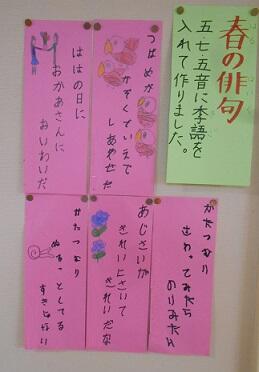 春の俳句
五・七・五音に季語を
入れて作りました。
つばめが
かぞくでいえで
しあわせだ
ははの日に
おかあさんに
おいわいだ
かたつむり
さわってみたら
のりみたい
あじさいが
きれいにさいて
きれいだな
かたつむり
ぬるっとしてる